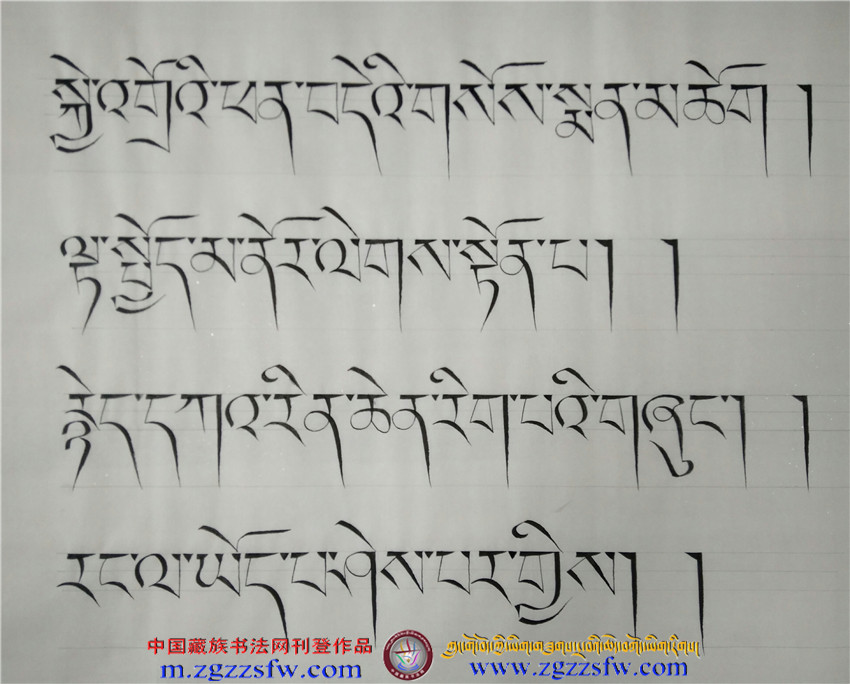 སྐྱེ་འགྲོའི་ཕན་བདེའི་གསོས་སྨན་མཆོག །
ལྟ་སྤྱོད་མ་ནོར་ལེགས་སྟོན་པ། །
རྙེད་དཀའ་རིན་ཆེན་རིག་པའི་གཞུང་། །
རང་ལ་ཡོད་པ་ཤེས་པར་གྱིས། །
中国藏族书法网刊登作品
m.zgzzsfw.com
www.zgzzsfw.com